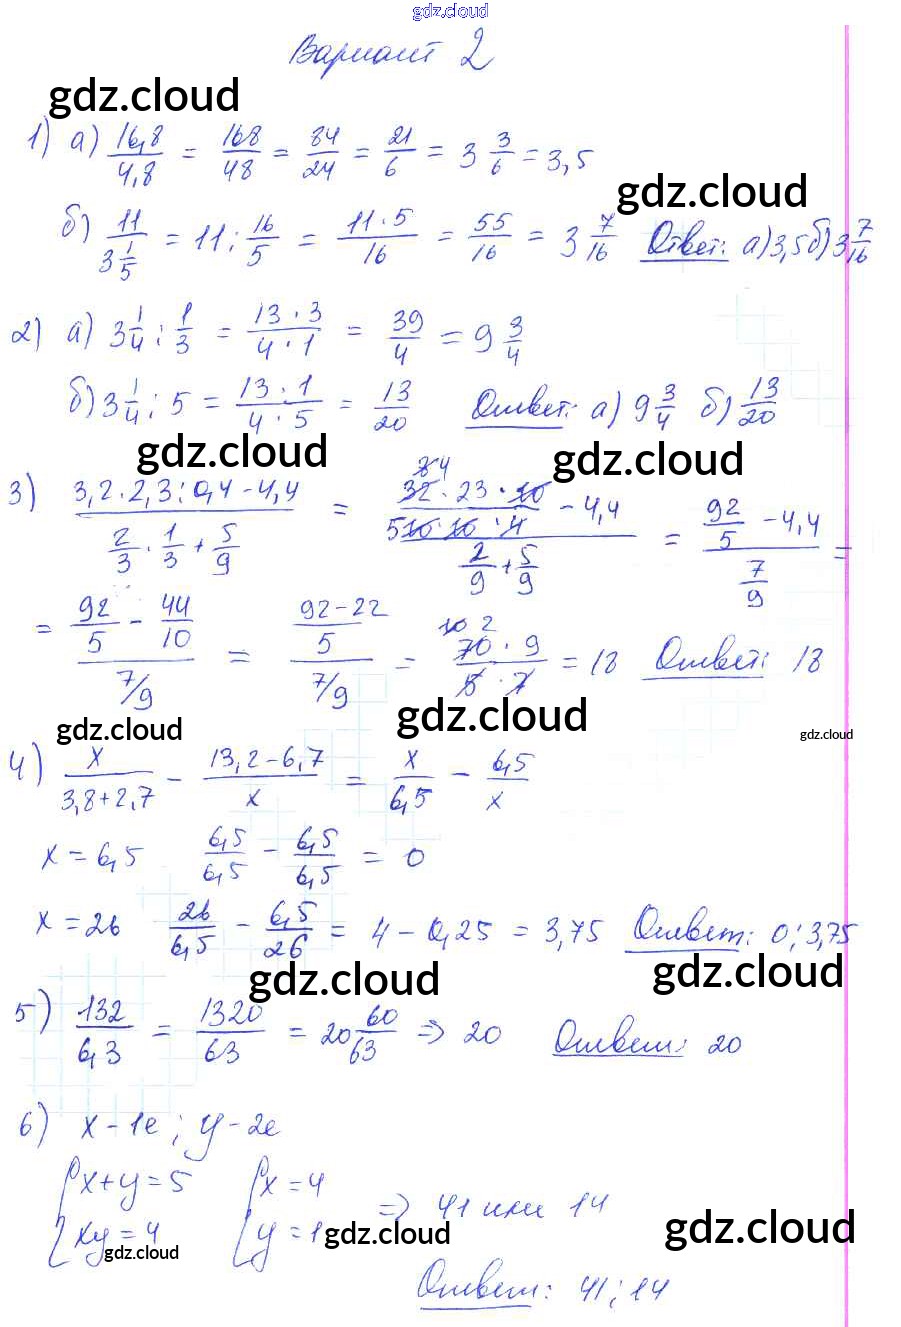 gdz.cloud
Вариант 2
gdz.cloud
1) а) 16,8/4,8 = 168/48 = 84/24 = 21/6 = 3 3/6 = 3,5
gdz.cloud
б) 11/(3 1/5) = 11 : 16/5 = (11·5)/16 = 55/16 = 3 7/16 Ответ: а) 3,5 б) 3 7/16
2) а) 3 1/4 : 1/3 = (13·3)/(4·1) = 39/4 = 9 3/4
б) 3 1/4 : 5 = (13·1)/(4·5) = 13/20 Ответ: а) 9 3/4 б) 13/20
gdz.cloud gdz.cloud
3) (3,2·2,3:0,4-4,4)/(2/3·1/3+5/9) = ((32·23·10)/(10·10·4) - 4,4)/(2/9+5/9) = (92/5 - 4,4)/(7/9) =
= (92/5 - 44/10)/(7/9) = ((92-22)/5)/(7/9) = (70·9)/(5·7) = 18 Ответ: 18
gdz.cloud gdz.cloud gdz.cloud
4) x/(3,8+2,7) - (13,2-6,7)/x = x/6,5 - 6,5/x
x = 6,5 6,5/6,5 - 6,5/6,5 = 0
x = 26 26/6,5 - 6,5/26 = 4 - 0,25 = 3,75 Ответ: 0; 3,75
gdz.cloud gdz.cloud
5) 132/6,3 = 1320/63 = 20 60/63 => 20 Ответ: 20
6) x - 1е; y - 2е
{x+y=5 {x=4 => 41 или 14
{xy=4 {y=1
gdz.cloud gdz.cloud gdz.cloud
Ответ: 41; 14